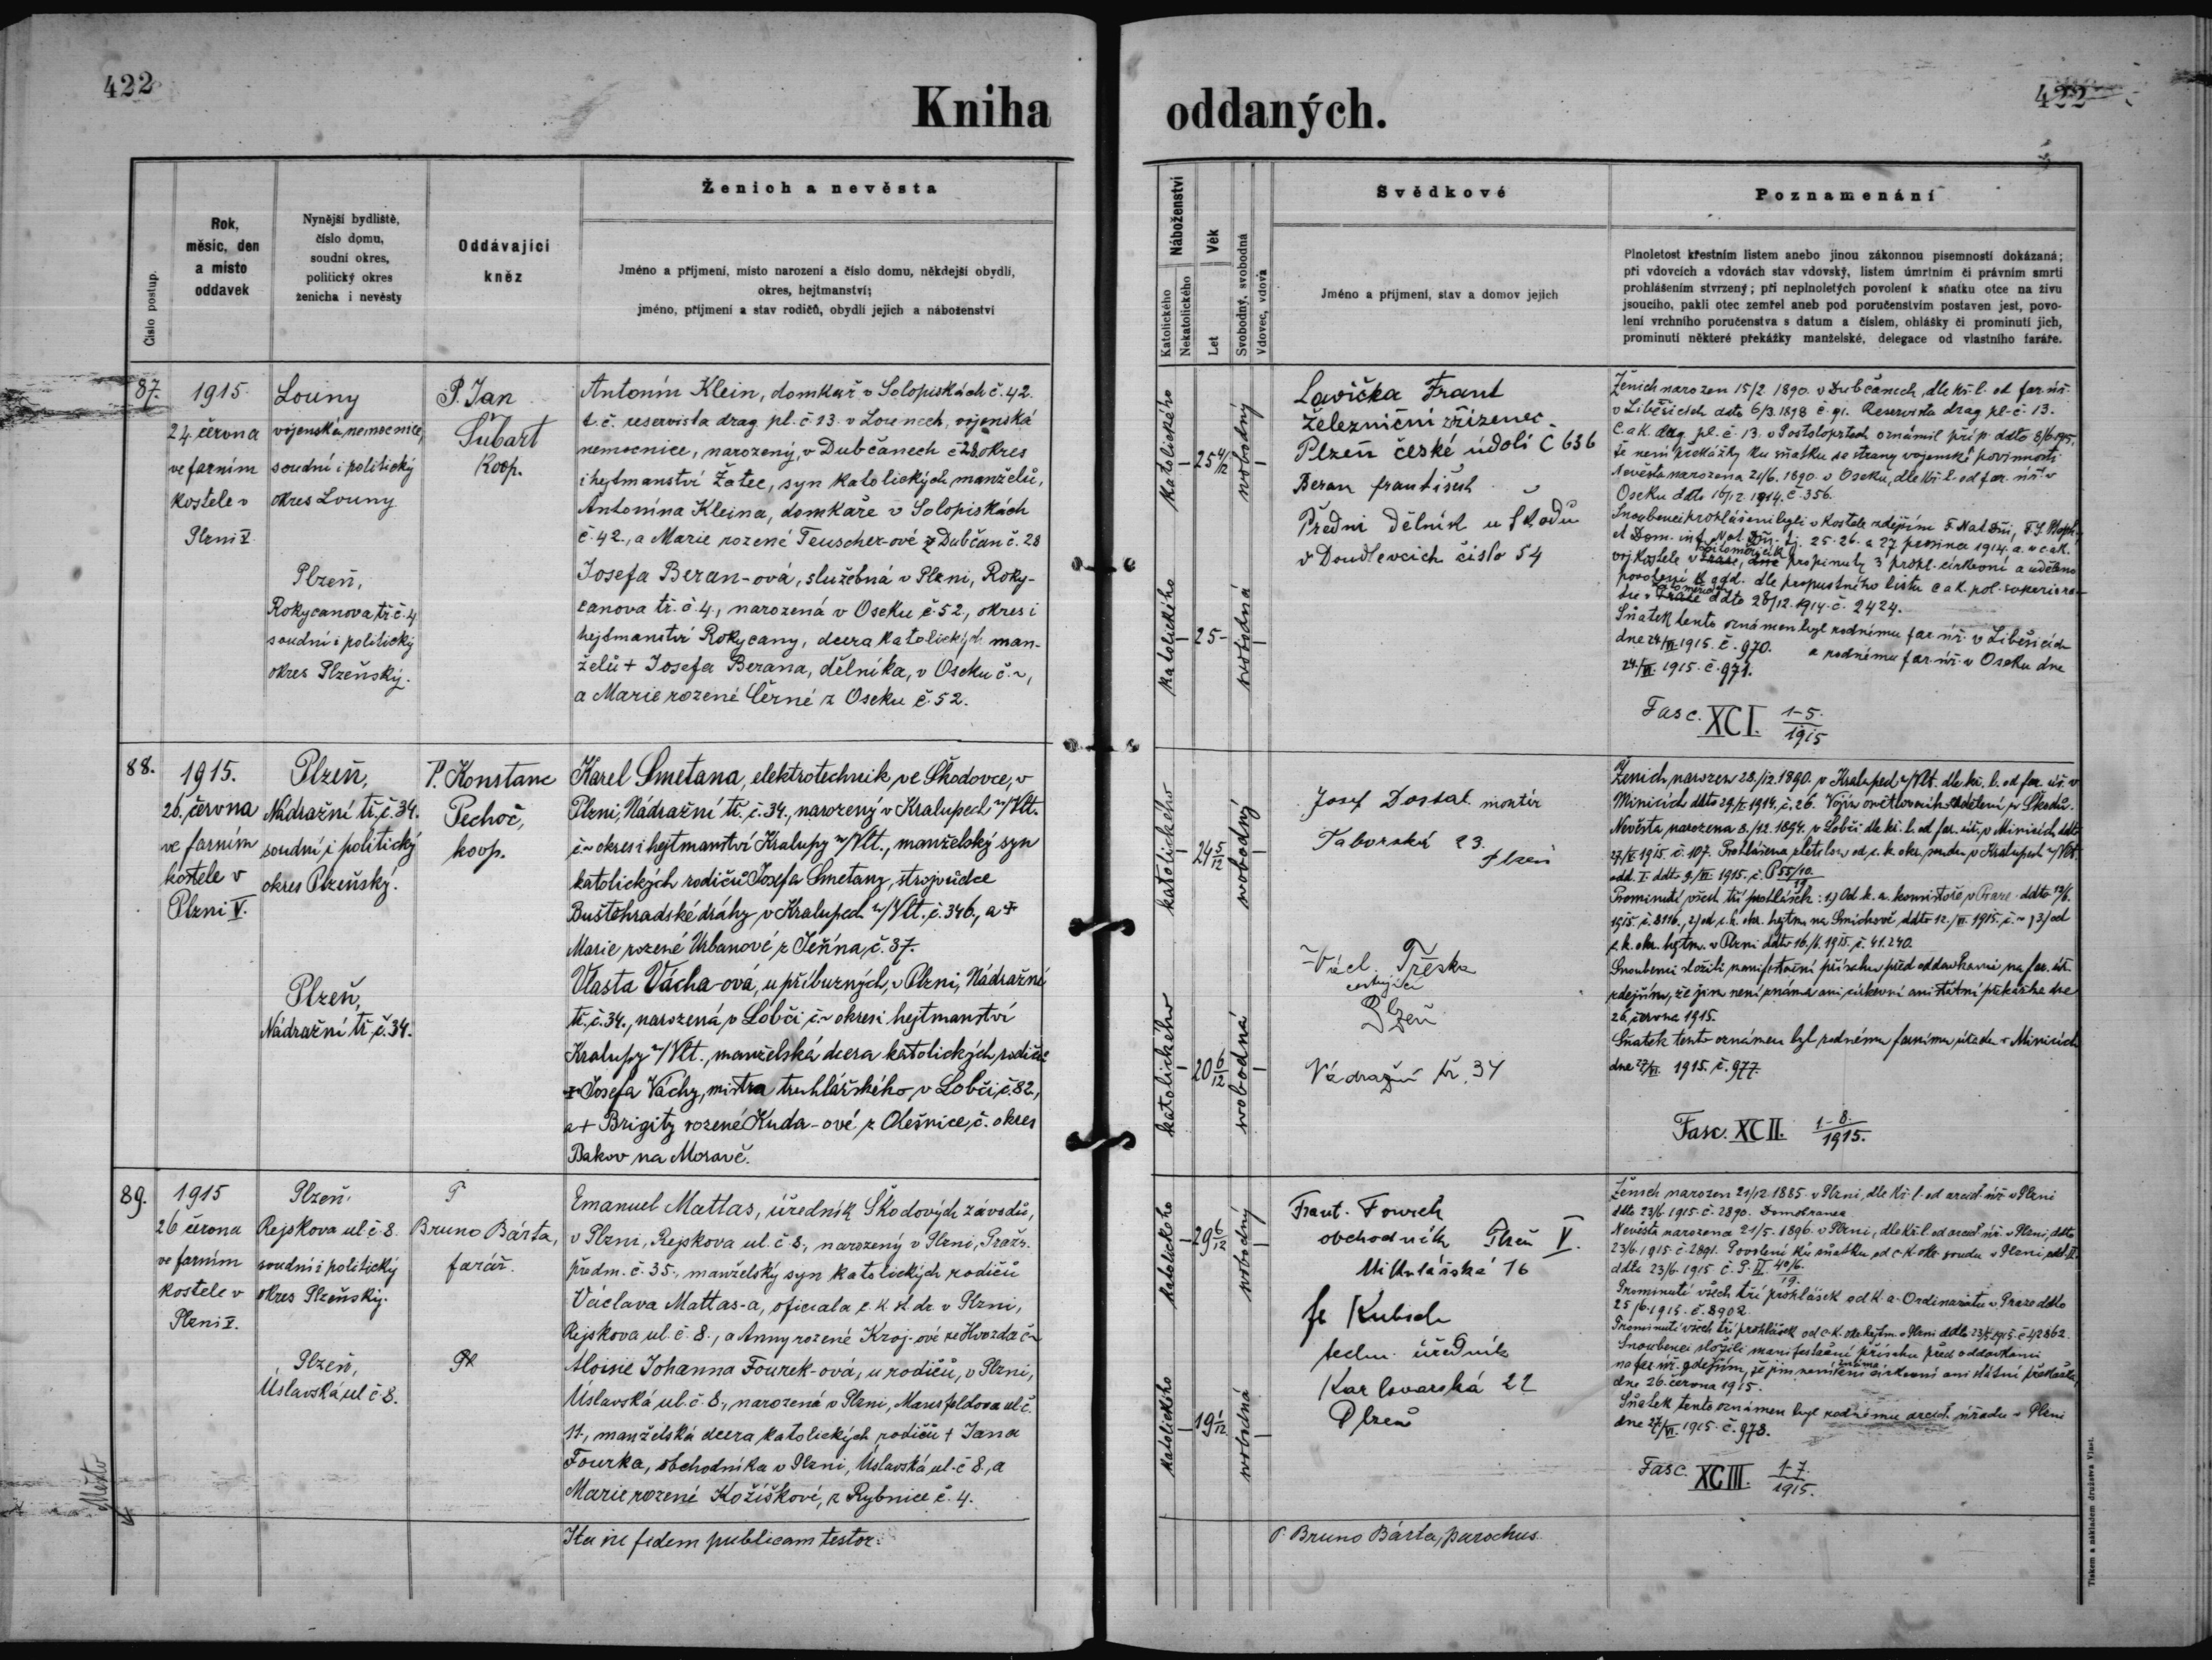 422
Kniha
oddaných.
422
Číslo postup.
Rok,
měsíc, den
a místo
oddavek
Nynější bydliště,
číslo domu,
soudní okres,
politický okres
ženicha i nevěsty
Oddávající
kněz
Ženich a nevěsta
Jméno a příjmení, místo narození a číslo domu, někdejší obydlí,
okres, hejtmanství;
jméno, příjmení a stav rodičů, obydlí jejich a náboženství
Náboženství
Katolického
Nekatolického
Věk
Let
Svobodný, svobodná
Vdovec, vdova
Svědkové
Jméno a příjmení, stav a domov jejich
Poznamenání
Plnoletost křestním listem anebo jinou zákonnou písemností dokázaná;
při vdovcích a vdovách stav vdovský, listem úmrtním či právním smrti
prohlášením stvrzený; při neplnoletých povolení k sňatku otce na živu
jsoucího, pakli otec zemřel aneb pod poručenstvím postaven jest, povo-
lení vrchního poručenstva s datum a číslem, ohlášky či prominutí jich,
prominutí některé překážky manželské, delegace od vlastního faráře.
87.
1915
24. června
ve farním
kostele v
Plzni V.
Louny
vojenská nemocnice,
soudní i politický
okres Louny
Plzeň,
Rokycanova tř. č. 4
soudní i politický
okres Plzeňský.
P. Jan
Šubart
Koop.
Antonín Klein, domkař v Solopiskách č. 42.
t. č. reservista drag. pl. č 13. v Lounech, vojenská
nemocnice, narozený, v Dubčanech č 28 okres
i hejtmanství Žatec, syn katolických manželů,
Antonína Kleina, domkáře v Solopiskách
č. 42., a Marie rozené Teuscher-ové z Dubčan č. 28
Josefa Beran-ová, služebná v Plzni, Roky-
canova tř. č. 4., narozená v Oseku č. 52., okres i
hejtmanství Rokycany, dcera katolických man-
želů + Josefa Berana, dělníka, v Oseku č. ~,
a Marie rozené Černé z Oseku č. 52.
katolického
25 4/12
svobodný
katolického
25
svobodná
Lavička Frant
železniční zřízenec
Plzeň české údolí č 636
Beran františek
Přední dělník u Škodů
v Doudlevcích číslo 54
Ženich narozen 15/2. 1890. v Dubčanech, dle kř. l. od far. úř.
v Liběšicích ddto 6/3. 1898 č. 91. Reservista drag. pl. č. 13.
C. a K. drag. pl. č. 13. v Postoloprtech oznámil příp. ddto 8/6 1915,
že není překážky ku sňatku se strany vojenské povinnosti
Nevěsta narozena 21/6. 1890. v Oseku, dle kř. l. od far. úř. v
Oseku ddto 16/12. 1914. č. 356.
Snoubenci prohlášeni byli v kostele zdejším
25. 26. a 27. prosince 1914.
dle propustného listu c a k. pol.
ddto 28/12. 1914. č. 2424.
Sňatek tento oznámen byl rodnému far. úř. v Liběšicích
dne 24/VI. 1915. č. 970. a rodnému far. úř. v Oseku dne
24./VI. 1915. č. 971.
Fasc. XCI. 1-5./1915
88.
1915.
26. června
ve farním
kostele v
Plzni V.
Plzeň,
Nádražní tř. č. 34.
soudní i politický
okres Plzeňský.
Plzeň,
Nádražní tř. č. 34.
P. Konstanc
Pechoč,
koop.
Karel Smetana, elektrotechnik ve Škodovce, v
Plzni, Nádražní tř. č. 34., narozený v Kralupech n/Vlt.
č ~ okres i hejtmanství Kralupy n/Vlt., manželský syn
katolických rodičů Josefa Smetany, strojvůdce
Buštěhradské dráhy v Kralupech n/Vlt. č. 346., a +
Marie rozené Urbanové z Jeřína, č. 37.
Vlasta Vácha-ová, u příbuzných, v Plzni, Nádražní
tř. č. 34., narozená v Lobči č ~ okres i hejtmanství
Kralupy n/Vlt., manželská dcera katolických rodičů
+ Josefa Váchy, mistra truhlářského, v Lobči, č. 82.,
a + Brigity rozené Kuda-ové z Olešnice, č. okres
Bakov na Moravě.
katolického
24 5/12
svobodný
katolického
20 6/12
svobodná
Josef Dostal montér
Táborská 23.
Plzeň
Václ. Třeska
cestující
Plzeň
Nádražní tř. 34
Ženich narozen 28./12. 1890. v Kralupech n/Vlt. dle kř. l. od far. úř. v
Minicích ddto 29/I. 1914, č. 26. Vojín osvětlovacího oddělení, u Škodů.
Nevěsta narozena 8./12. 1894. v Lobči dle kř. l. od far. úř. v Minicích, ddto
27/V. 1915. č. 107. Prohlášena zletilou od c. k. okr. soudu v Kralupech n/Vlt.
odd. I. ddto 9./VI. 1915. č. P 55/10./19
Prominutí všech tří prohlášek: 1) Od k. a. konsistoře v Praze ddto 12/6.
1915. č. 8116, 2) od c. k. okr. hejtm. na Smíchově ddto 12./VI. 1915. č. ~ 3) od
c. k. okr. hejtm. v Plzni ddto 16./6. 1915. č. 41.240.
Snoubenci složili manifestační přísahu před oddavkami na far. úř.
zdejším, že jim není známa ani církevní ani státní překážka dne
26. června 1915.
Sňatek tento oznámen byl rodnému farnímu úřadu v Minicích
dne 27/VI. 1915. č. 977.
Fasc. XCII. 1-8./1915.
89.
1915
26 června
ve farním
kostele v
Plzni V.
Plzeň
Rejskova ul. č. 8.
soudní i politický
okres Plzeňský.
Plzeň,
Úslavská, ul. č. 8.
P
Bruno Bárta,
farář.
Emanuel Mattas, úředník Škodových závodů,
v Plzni, Rejskova ul. č. 8., narozený v Plzni, Pražs.
předm. č. 35., manželský syn katolických rodičů
Václava Mattas-a, oficiala c. k. st. dr. v Plzni,
Rejskova ul. č. 8., a Anny rozené Kroj-ové ze Hvozda č ~
Aloisie Johanna Fourek-ová, u rodičů, v Plzni,
Úslavská ul. č. 8., narozená v Plzni, Mansfeldova ul. č.
11., manželská dcera katolických rodičů + Jana
Fourka, obchodníka v Plzni, Úslavská ul. č 8., a
Marie rozené Kožíškové, z Rybnice č. 4.
katolického
29 6/12
svobodný
katolického
19 1/12
svobodná
Frant. Fourek
obchodník Plzeň V.
Mikulášská 16
Kubich
techn. úředník
Karlovarská 22
Plzeň
Ženich narozen 21/12. 1885. v Plzni, dle kř. l. od arcid. úř. v Plzni
ddto 23/6. 1915. č. 2890. Domobranec
Nevěsta narozena 21/5. 1896. v Plzni, dle kř. l. od arcid. úř. v Plzni, ddto
23/6. 1915. č. 2891. Povolení ku sňatku od c. k. okr. soudu v Plzni, odd. II.
ddto 23/6. 1915 č. P. II. 40/6./19.
Prominutí všech tří prohlášek od K. a. Ordinariátu v Praze ddto
25/6. 1915. č. 8902.
Prominutí všech tří prohlášek od c. k. okr. hejtm. v Plzni ddto 23/6 1915. č 42862.
Snoubenci složili manifestační přísahu před oddavkami
na far. úř. zdejším, že jim není známa církevní ani státní překážka,
dne 26. června 1915.
Sňatek tento oznámen byl rodnému arcid. úřadu v Plzni
dne 27./VI. 1915. č. 978.
Fasc. XCIII. 1-7./1915.
Město
Ita in fidem publicam testor:
P. Bruno Bárta, parochus.
Tiskem a nákladem družstva Vlast.